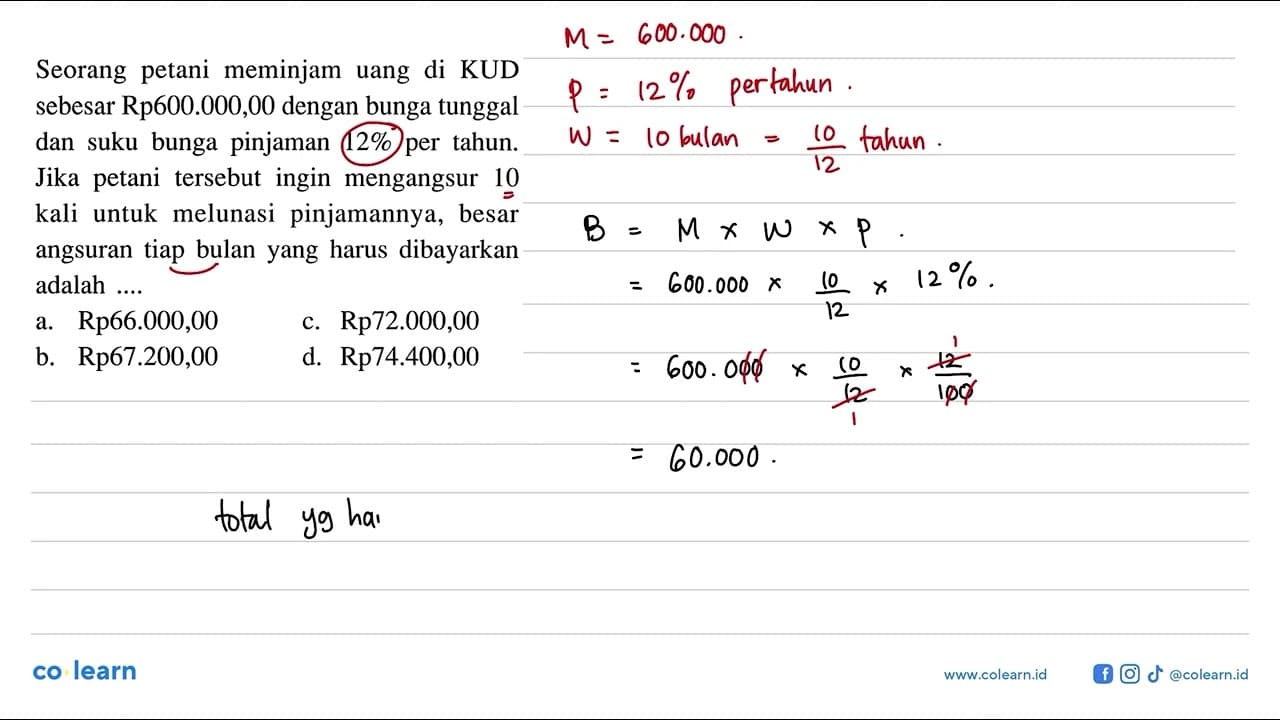 Seorang petani meminjam uang di KUD
sebesar Rp600.000,00 dengan bunga tunggal
dan suku bunga pinjaman 12% per tahun.
Jika petani tersebut ingin mengangsur 10
kali untuk melunasi pinjamannya, besar
angsuran tiap bulan yang harus dibayarkan
adalah ....
a. Rp66.000,00 c. Rp72.000,00
b. Rp67.200,00 d. Rp74.400,00
M = 600.000.
P = 12% pertahun.
W = 10 bulan = 10/12 tahun.
B = M x W x P.
= 600.000 x 10/12 x 12%.
= 600.000 x 10/12 x 12/100
1
1
= 60.000.
total yg har
co learn
www.colearn.id
@colearn.id